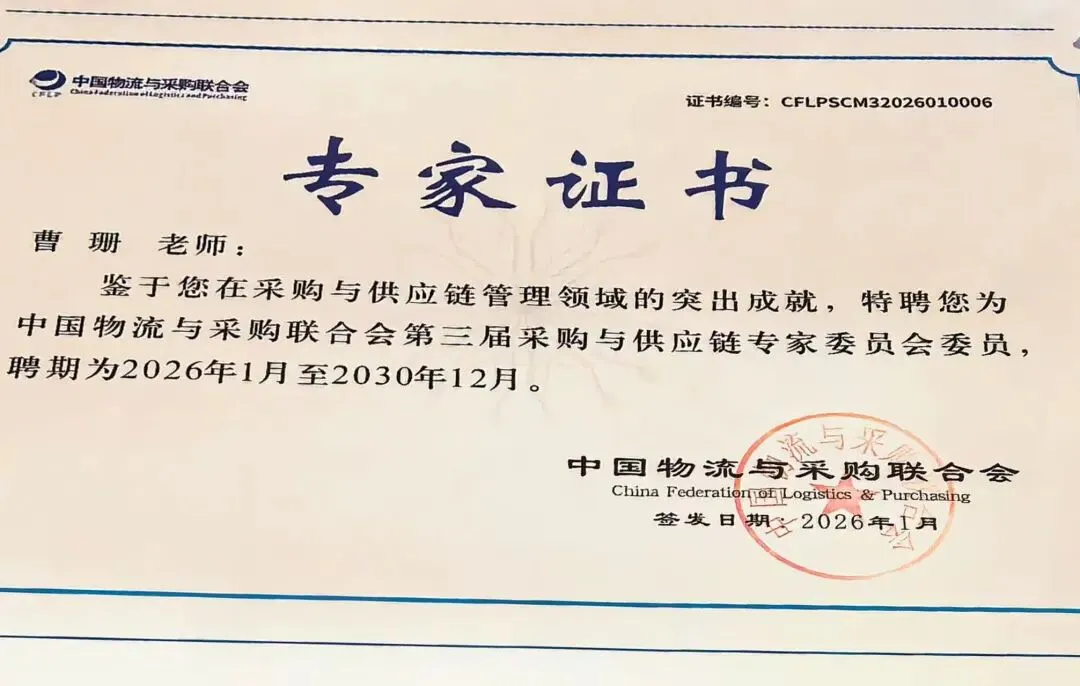 中国物流与采购联合会
China Federation of Logistics and Purchasing
CFLP
证书编号：CFLPSCM32026010006
专家证书
曹 珊 老师：
鉴于您在采购与供应链管理领域的突出成就，特聘您为
中国物流与采购联合会第三届采购与供应链专家委员会委员，
聘期为2026年1月至2030年12月。
中国物流与采购联合会
中国物流与采购联合会
China Federation of Logistics & Purchasing
签发日期：2026年1月